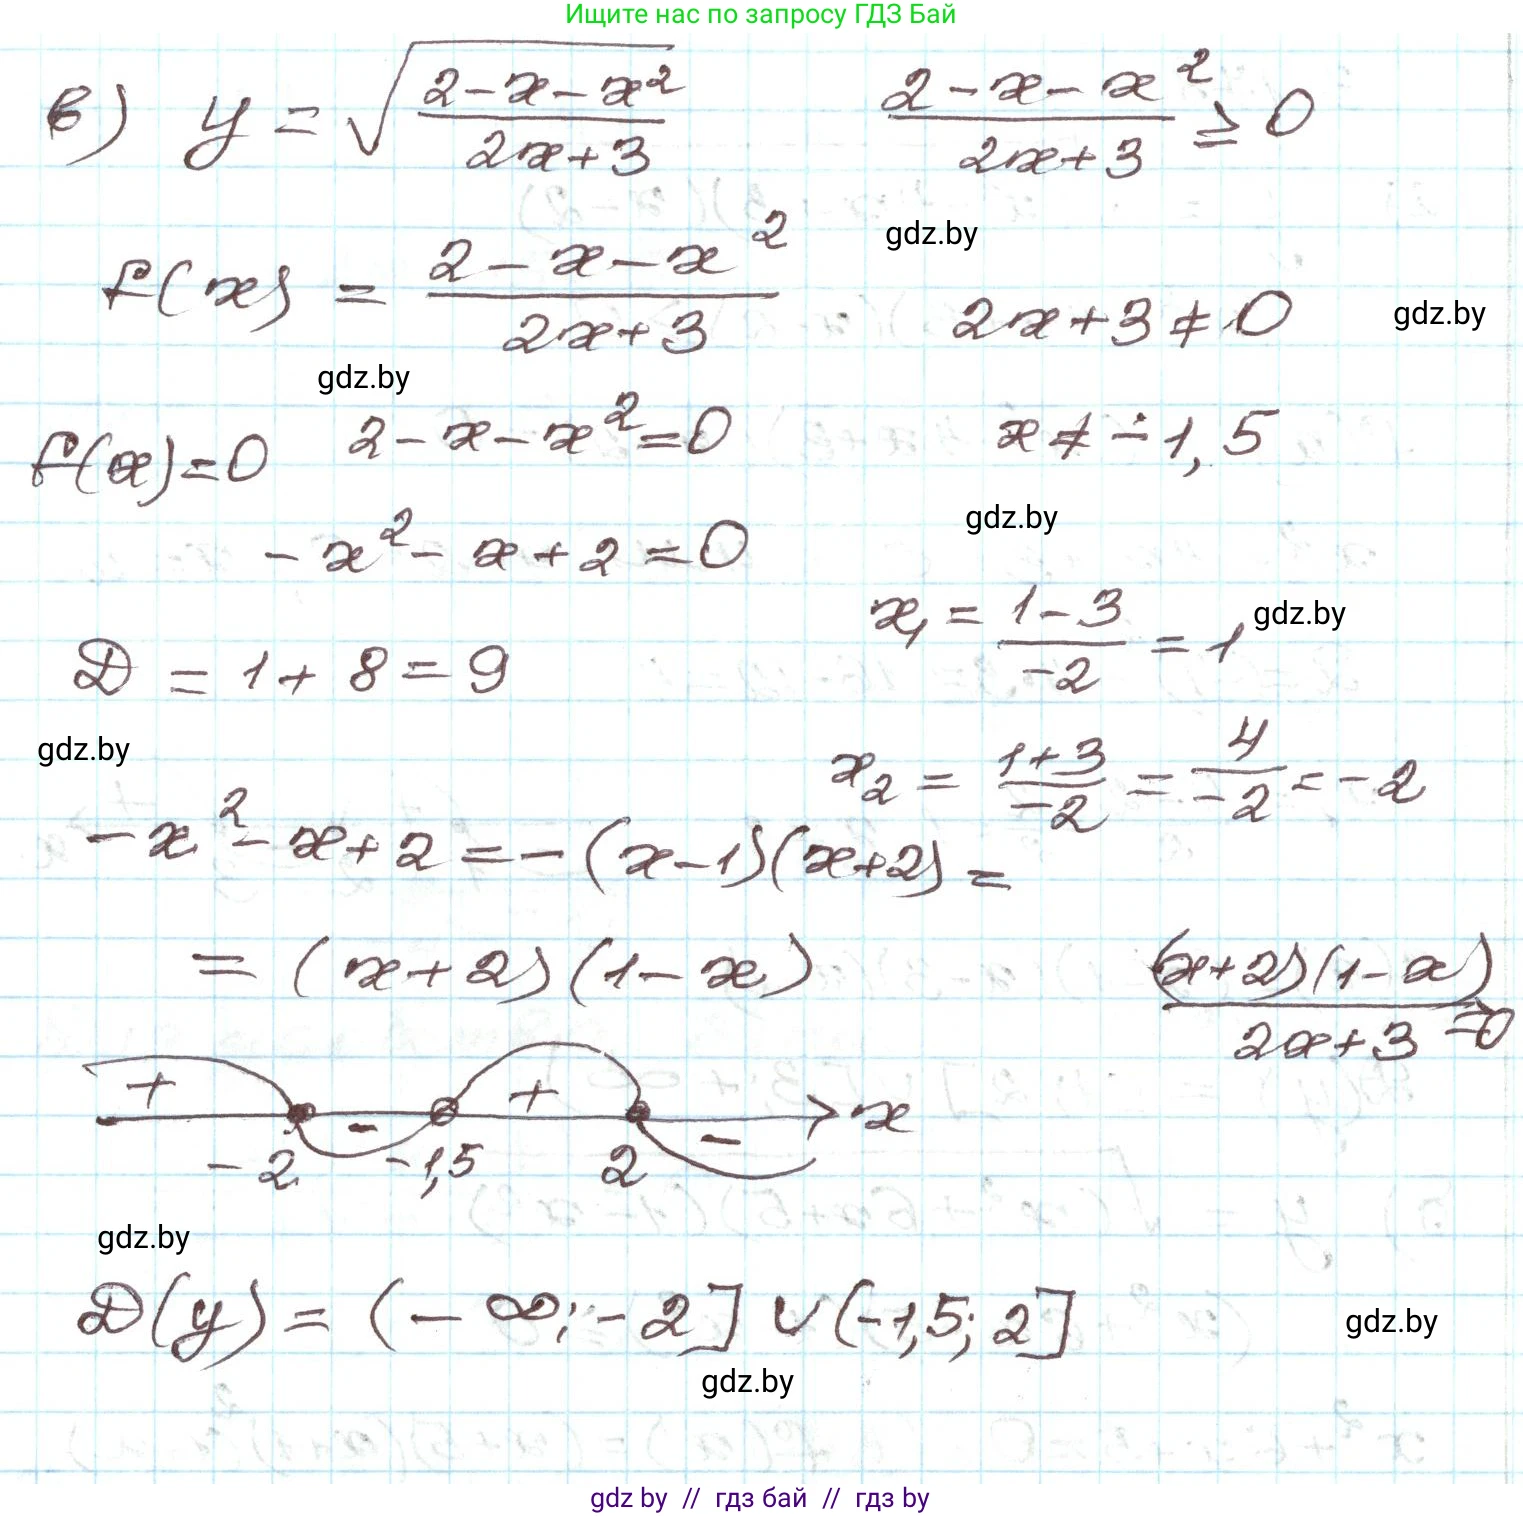 Ищите нас по запросу ГДЗ Бай
в) y = √((2-x-x²)/(2x+3))   (2-x-x²)/(2x+3) ≥ 0
gdz.by
f(x) = (2-x-x²)/(2x+3)   2x+3≠0
gdz.by
gdz.by
f(x)=0   2-x-x²=0   x≠-1,5
gdz.by
-x²-x+2=0
x₁ = (1-3)/(-2) = 1
gdz.by
D = 1+8=9
gdz.by
x₂ = (1+3)/(-2) = 4/(-2) = -2
-x²-x+2=-(x-1)(x+2)=
=(x+2)(1-x)   ((x+2)(1-x))/(2x+3) ≥0
+ - + - x
-2 -1,5 2
gdz.by
D(y)=(-∞;-2]∪(-1,5;2]
gdz.by
gdz.by
gdz by // гдз бай // гдз by